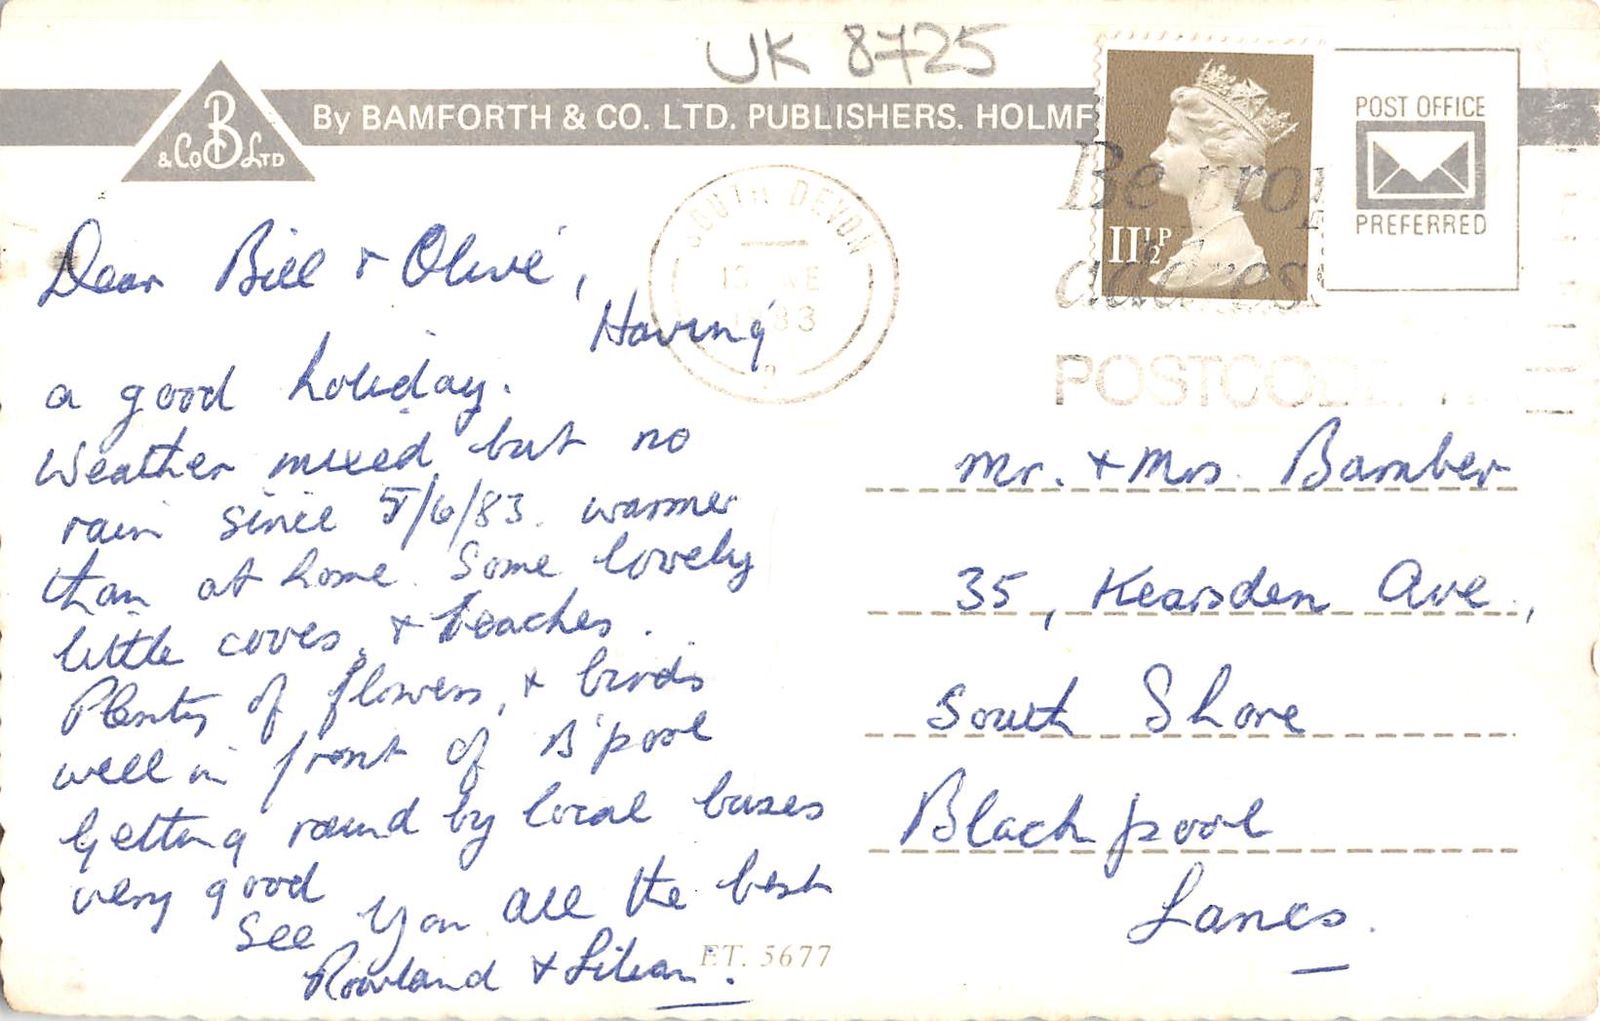 UK 8725
B & Co LTD
By BAMFORTH & CO. LTD. PUBLISHERS. HOLMF
POST OFFICE
PREFERRED
11½P
SOUTH DEVON
Be
address
POSTCODE
Dear Bill & Olive,
Having
a good holiday.
Weather mixed, but no
rain since 5/6/83. warmer
than at home. Some lovely
little coves, & beaches.
Plenty of flowers, & birds
well in front of B'pool
Getting round by local buses
very good
See you all the best
Rowland & Lilian.
ET. 5677
Mr. & Mrs. Bamber
35, Kearsden Ave,
South Shore
Blackpool
Lancs.